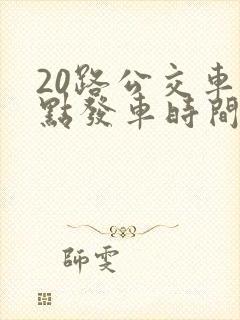 20路公交車
點發車時間
師雯